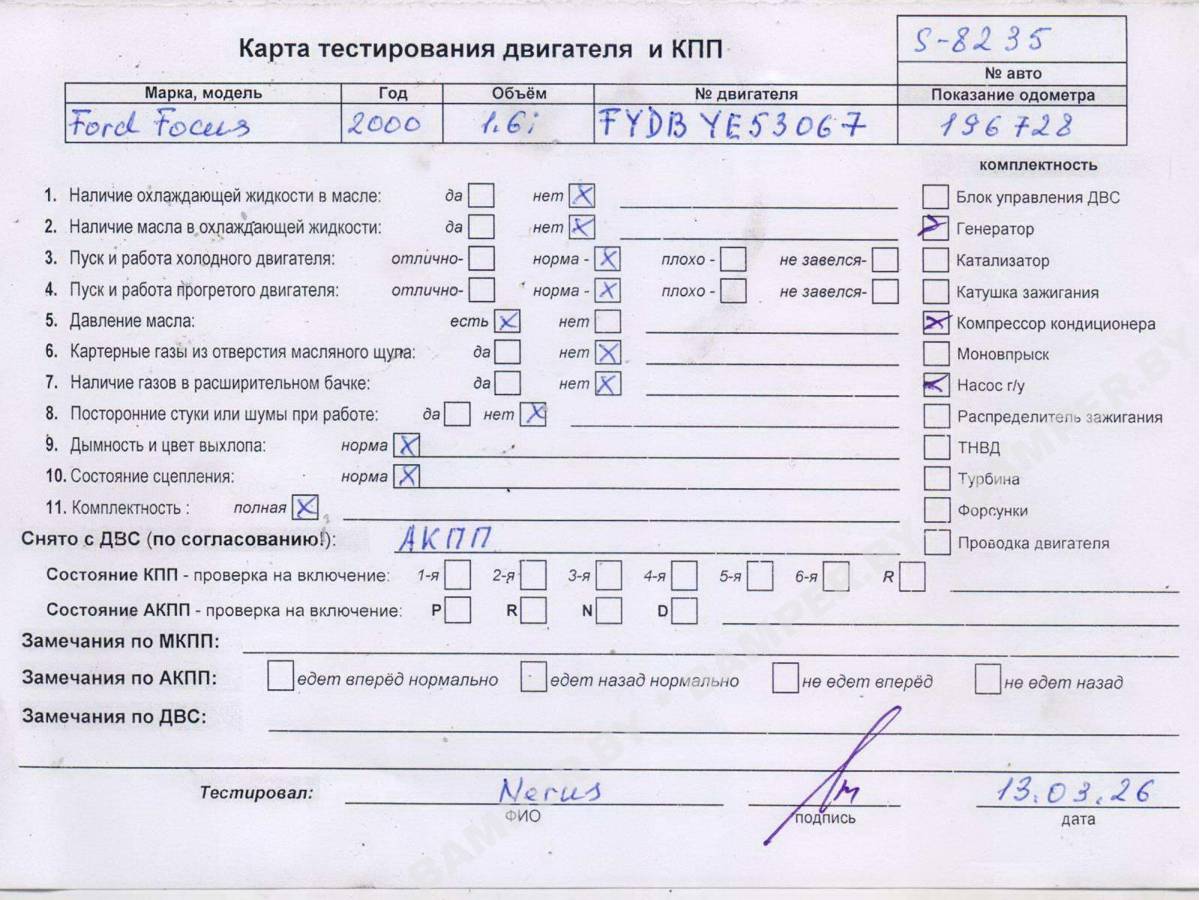 S-8235
Карта тестирования двигателя и КПП
№ авто
Марка, модель Год Объём № двигателя Показание одометра
Ford Focus 2000 1.6i FYDB YE53067 196728
комплектность
1. Наличие охлаждающей жидкости в масле: да нет X
Блок управления ДВС
2. Наличие масла в охлаждающей жидкости: да нет X
Генератор
3. Пуск и работа холодного двигателя: отлично- норма - X плохо - не завелся-
Катализатор
4. Пуск и работа прогретого двигателя: отлично- норма - X плохо - не завелся-
Катушка зажигания
5. Давление масла: есть X нет
X Компрессор кондиционера
6. Картерные газы из отверстия масляного щупа: да нет X
Моновпрыск
7. Наличие газов в расширительном бачке: да нет X
Насос г/у
8. Посторонние стуки или шумы при работе: да нет X
Распределитель зажигания
9. Дымность и цвет выхлопа: норма X
ТНВД
10. Состояние сцепления: норма X
Турбина
11. Комплектность : полная X
Форсунки
Снято с ДВС (по согласованию!): АКПП
Проводка двигателя
Состояние КПП - проверка на включение: 1-я 2-я 3-я 4-я 5-я 6-я R
Состояние АКПП - проверка на включение: P R N D
Замечания по МКПП:
Замечания по АКПП: едет вперёд нормально едет назад нормально не едет вперёд не едет назад
Замечания по ДВС:
Тестировал: Nerus 13.03.26
ФИО подпись дата
BAMPER.BY BAMPER.BY BAMPER.BY BAMPER.BY